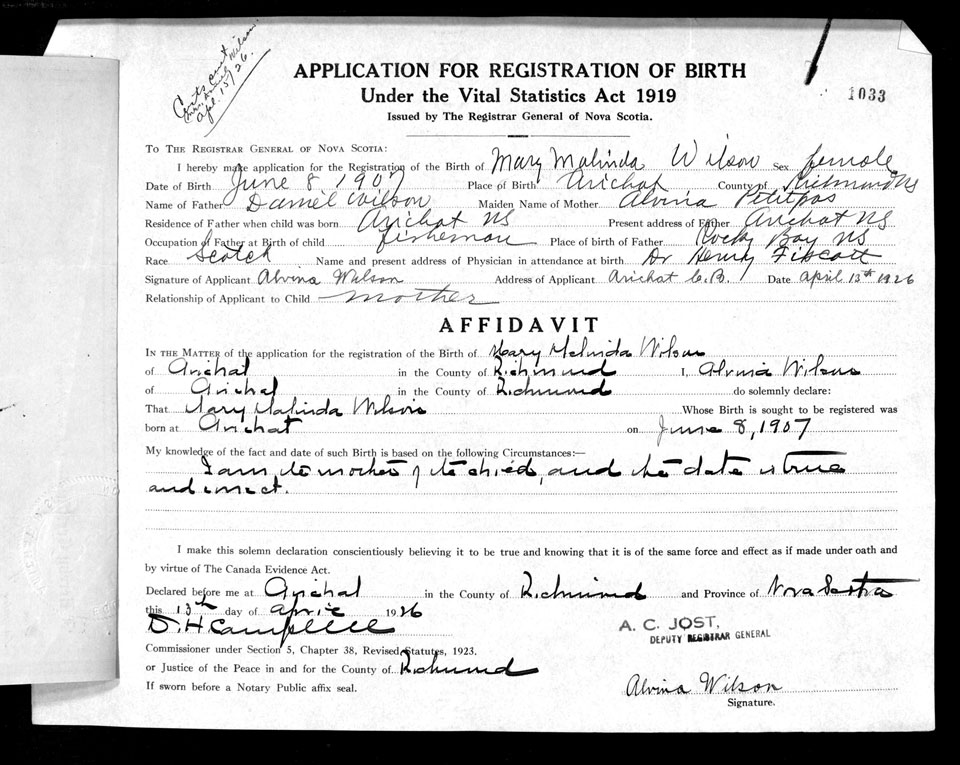 Cert. sent
Mrs. Daniel Wilson
Apl. 15/26.
APPLICATION FOR REGISTRATION OF BIRTH
Under the Vital Statistics Act 1919
Issued by The Registrar General of Nova Scotia.
1033
To The Registrar General of Nova Scotia:
I hereby make application for the Registration of the Birth of Mary Malinda Wilson Sex female
Date of Birth June 8, 1907 Place of Birth Arichat County of Richmond NS
Name of Father Daniel Wilson Maiden Name of Mother Alvina Petitpas
Residence of Father when child was born Arichat NS Present address of Father Arichat NS
Occupation of Father at Birth of child fisherman Place of birth of Father Rocky Bay NS
Race Scotch Name and present address of Physician in attendance at birth Dr Henry
Signature of Applicant Alvina Wilson Address of Applicant Arichat C.B. Date April 13th 1926
Relationship of Applicant to Child mother
AFFIDAVIT
In the Matter of the application for the registration of the Birth of Mary Melinda Wilson
of Arichat in the County of Richmond I, Alvina Wilson
of Arichat in the County of Richmond do solemnly declare:
That Mary Malinda Wilson Whose Birth is sought to be registered was
born at Arichat on June 8, 1907
My knowledge of the fact and date of such Birth is based on the following Circumstances:—
I am the mother of the child, and the date is true
and correct.
I make this solemn declaration conscientiously believing it to be true and knowing that it is of the same force and effect as if made under oath and
by virtue of The Canada Evidence Act.
Declared before me at Arichat in the County of Richmond and Province of Nova Scotia
this 13th day of April 1926
D. H Campbell
A. C. JOST,
DEPUTY REGISTRAR GENERAL
Commissioner under Section 5, Chapter 38, Revised Statutes, 1923.
or Justice of the Peace in and for the County of Richmond
If sworn before a Notary Public affix seal.
Alvina Wilson
Signature.